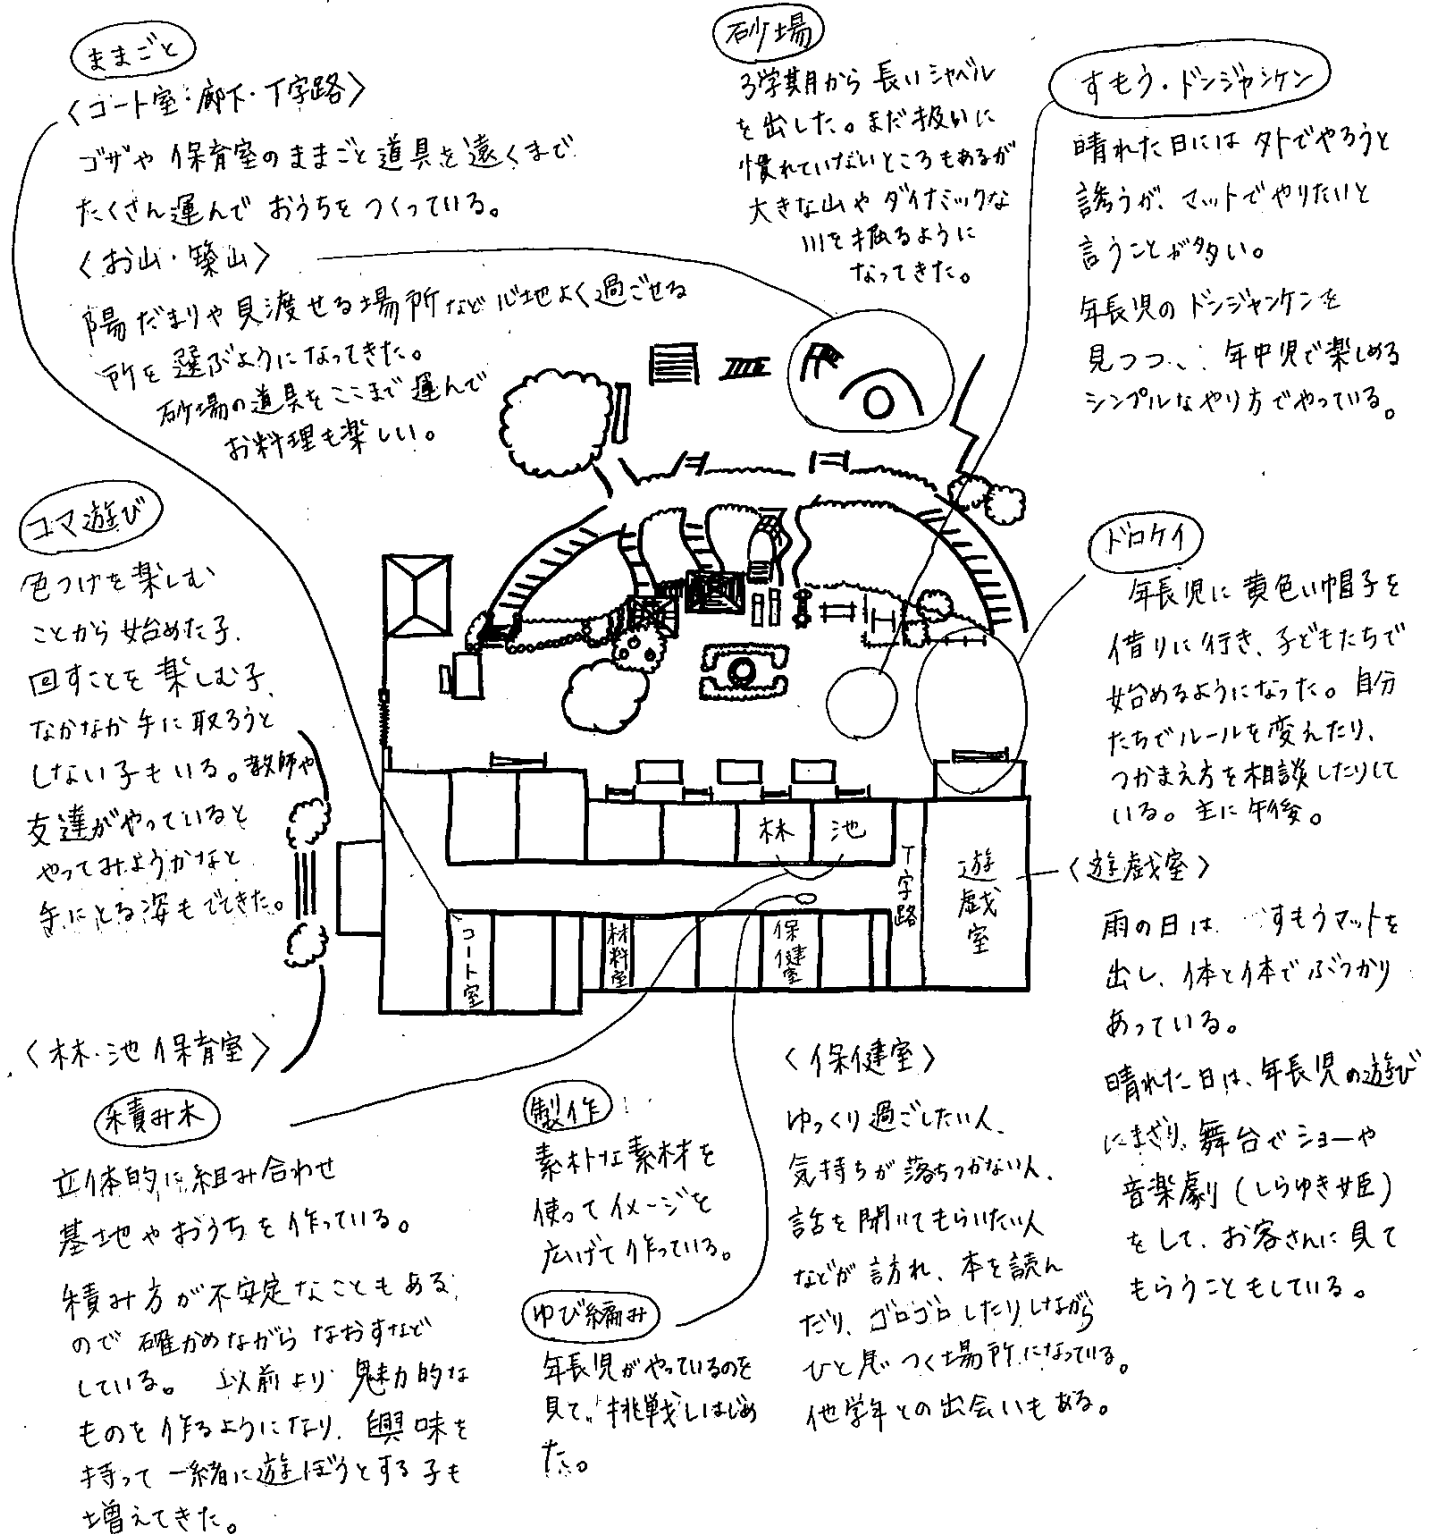 ままごと
〈コート室・廊下・T字路〉
ゴザや保育室のままごと道具を遠くまで
たくさん運んでおうちをつくっている。
〈お山・築山〉
陽だまりや見渡せる場所など心地よく過ごせる
所を選ぶようになってきた。
砂場の道具をここまで運んで
お料理も楽しい。
砂場
3学期から長いシャベル
を出した。まだ扱いに
慣れていないところもあるが
大きな山やダイナミックな
川を掘るように
なってきた。
すもう・ドンジャンケン
晴れた日には外でやろうと
誘うが、マットでやりたいと
言うことが多い。
年長児のドンジャンケンを
見つつ、年中児で楽しめる
シンプルなやり方でやっている。
コマ遊び
色つけを楽しむ
ことから始めた子、
回すことを楽しむ子、
なかなか手に取ろうと
しない子もいる。教師や
友達がやっていると
やってみようかなと
手にとる姿もでてきた。
ドロケイ
年長児に黄色い帽子を
借りに行き、子どもたちで
始めるようになった。自分
たちでルールを変えたり、
つかまえ方を相談したりして
いる。主に午後。
林
池
T字路
遊戯室
コート室
材料室
保健室
〈遊戯室〉
雨の日は、すもうマットを
出し、体と体でぶつかり
あっている。
晴れた日は、年長児の遊び
にまざり、舞台でショーや
音楽劇（しらゆき姫）
をして、お客さんに見て
もらうこともしている。
〈林・池保育室〉
積み木
立体的に組み合わせ
基地やおうちを作っている。
積み方が不安定なこともある
ので確かめながらなおすなど
している。以前より魅力的な
ものを作るようになり、興味を
持って一緒に遊ぼうとする子も
増えてきた。
製作
素朴な素材を
使ってイメージを
広げて作っている。
ゆび編み
年長児がやっているのを
見て、挑戦しはじめ
た。
〈保健室〉
ゆっくり過ごしたい人、
気持ちが落ちつかない人、
話を聞いてもらいたい人
などが訪れ、本を読ん
だり、ゴロゴロしたりしながら
ひと息つく場所になっている。
他学年との出会いもある。